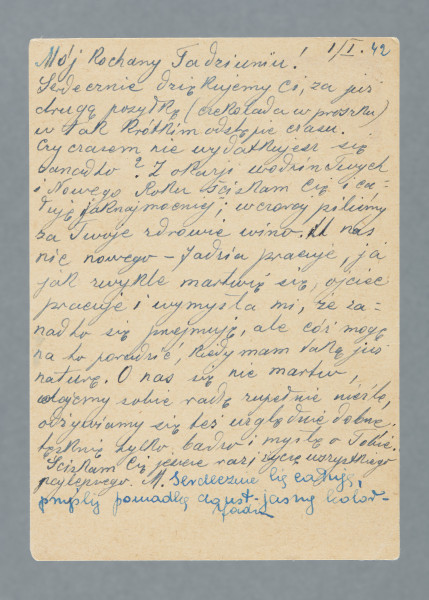 Mój Kochany Tadziuniu! 1/I. 42
Serdecznie dziękujemy Ci, za już
drugą posyłkę (czekolada w proszku)
w tak krótkim odstępie czasu.
Czy czasem nie wydatkujesz się
zanadto? Z okazji urodzin Twych
i Nowego Roku ściskam Cię i ca-
łuję jaknajmocniej; wczoraj piliśmy
za Twoje zdrowie wino. U nas
nic nowego – Jadzia pracuje, ja
jak zwykle martwię się, ojciec
pracuje i wymyśla mi, że za-
nadto się przejmuję, ale cóż mogę
na to poradzić, kiedy mam taką już
naturę. O nas się nie martw,
dajemy sobie radę zupełnie nieźle,
odżywiamy się też względnie dobrze,
tęsknię tylko bardzo i myślę o Tobie.
Ściskam Cię jeszcze raz i życzę wszystkiego
najlepszego. M. Serdecznie Cię całuję,
pomadkę do ust - jasny kolor -
Jadzia